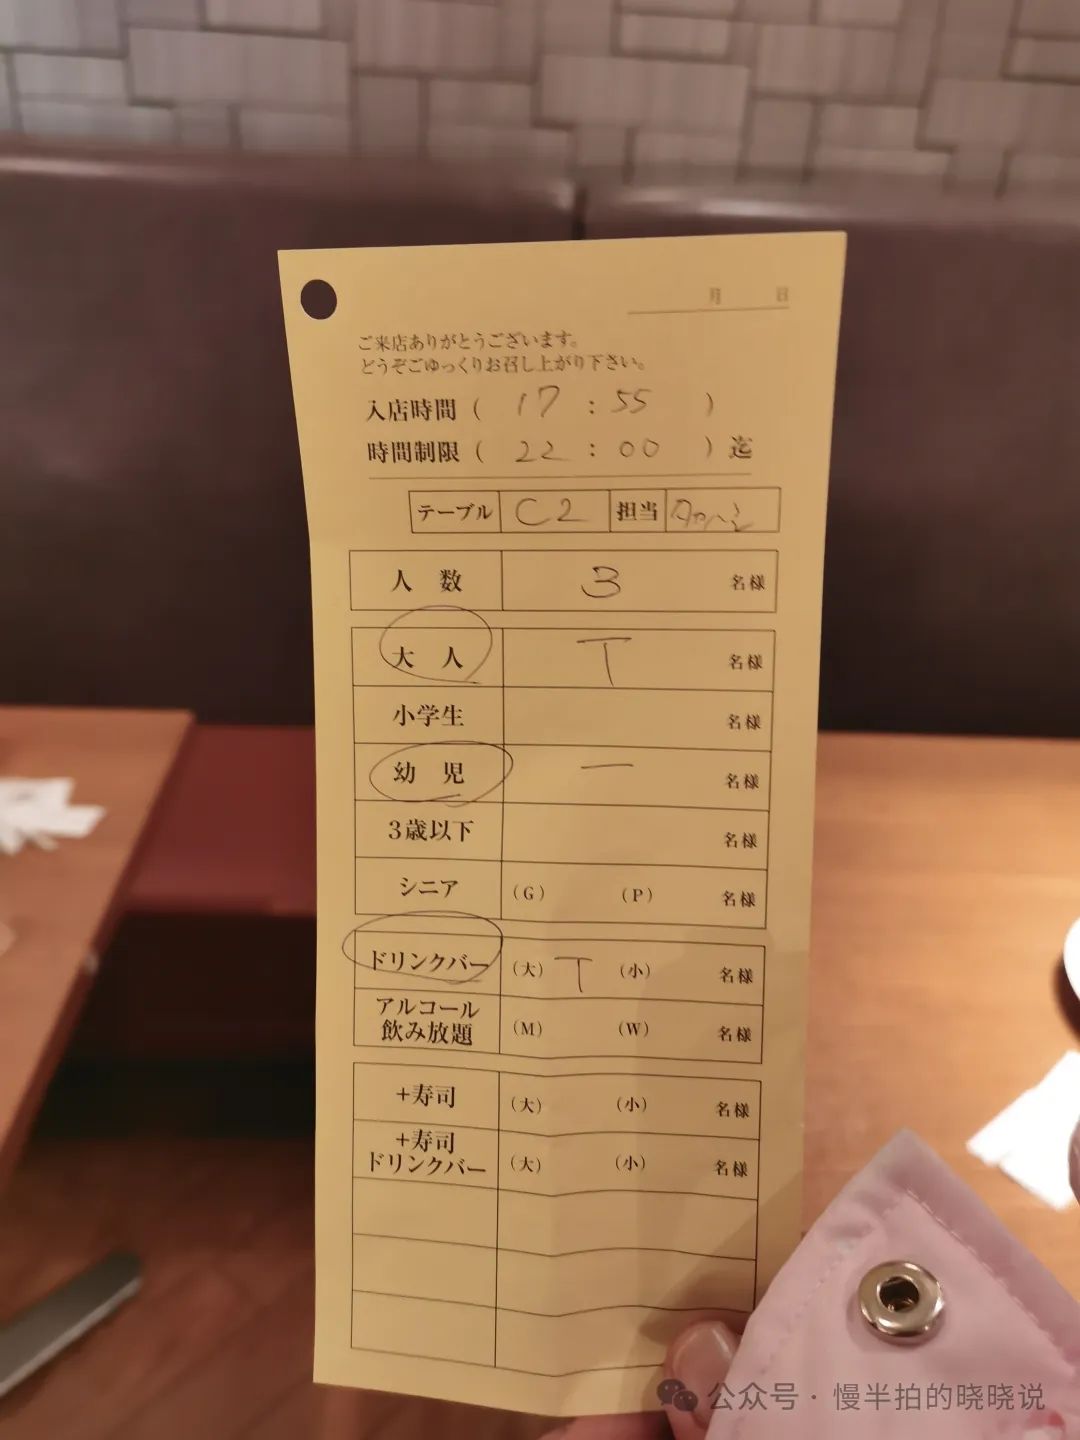 月 日
ご来店ありがとうございます。
どうぞごゆっくりお召し上がり下さい。
入店時間 ( 17 : 55 )
時間制限 ( 22 : 00 ) 迄
テーブル C2 担当
人 数 3 名様
大 人 T 名様
小学生 名様
幼 児 一 名様
3歳以下 名様
シニア (G) (P) 名様
ドリンクバー (大) T (小) 名様
アルコール
飲み放題 (M) (W) 名様
+寿司 (大) (小) 名様
+寿司
ドリンクバー (大) (小) 名様
公众号 · 慢半拍的晓晓说